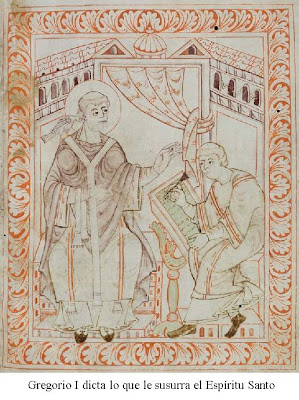 Gregorio I dicta lo que le susurra el Espíritu Santo